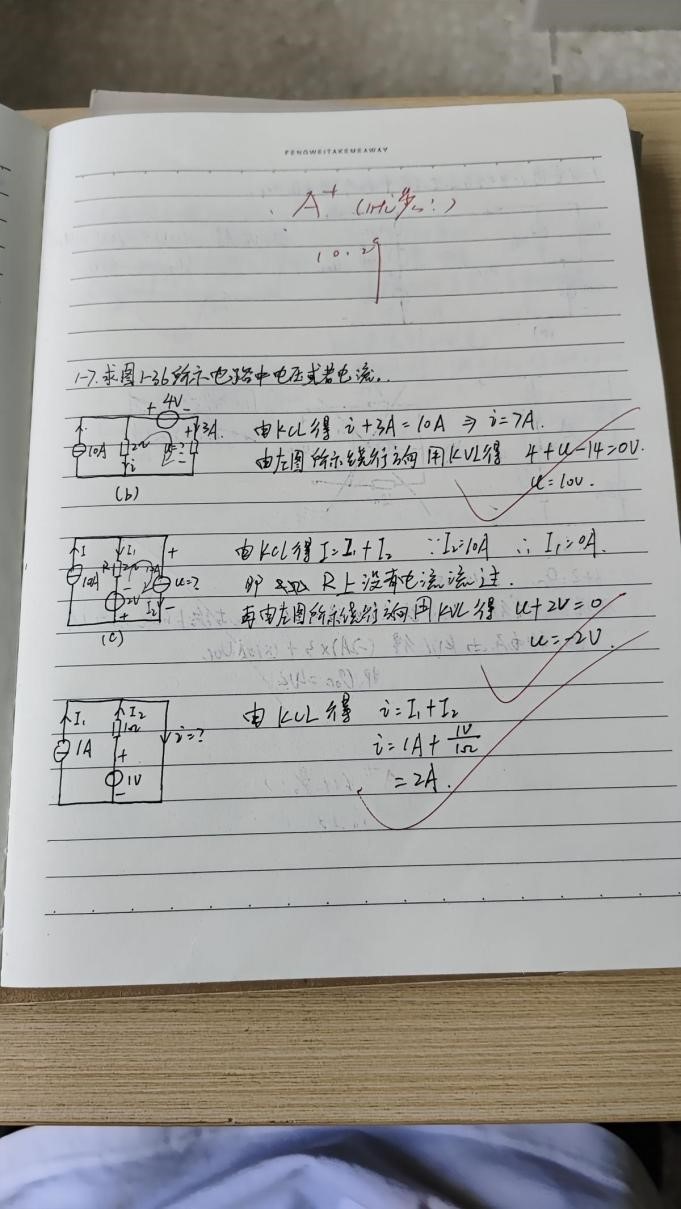 FENGWEITAKEMEAWAY
A+
10.29
1-7.求图1-36所示电路中电压或者电流.
+ 4V -
10A 2Ω i + u=? - 3A.
由KCL得 i+3A=10A ⇒ i=7A.
由左图所示绕行方向用KVL得 4+u-14=0V.
u=10V.
(b)
I I₁ +
10A R 2Ω 10A u=?
2V I₂ -
+
由KCL得 I=I₁+I₂ ∵I₂=10A ∴I₁=0A.
即 R上没有电流流过.
再由左图所示绕行方向用KVL得 u+2V=0
u=-2V.
(c)
I₁ I₂ i=?
1Ω
1A + 1V -
由KCL得 i=I₁+I₂
i=1A+1V/1Ω
=2A.